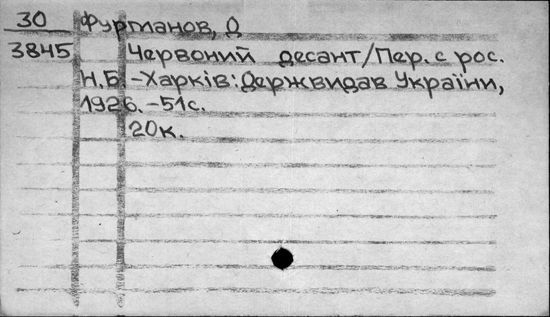 30 Фурманов, Д
3845 Червоний десант/Пер. с рос.
Н.Б.-Харків: Держвидав України,
1926.-51с.
20к.